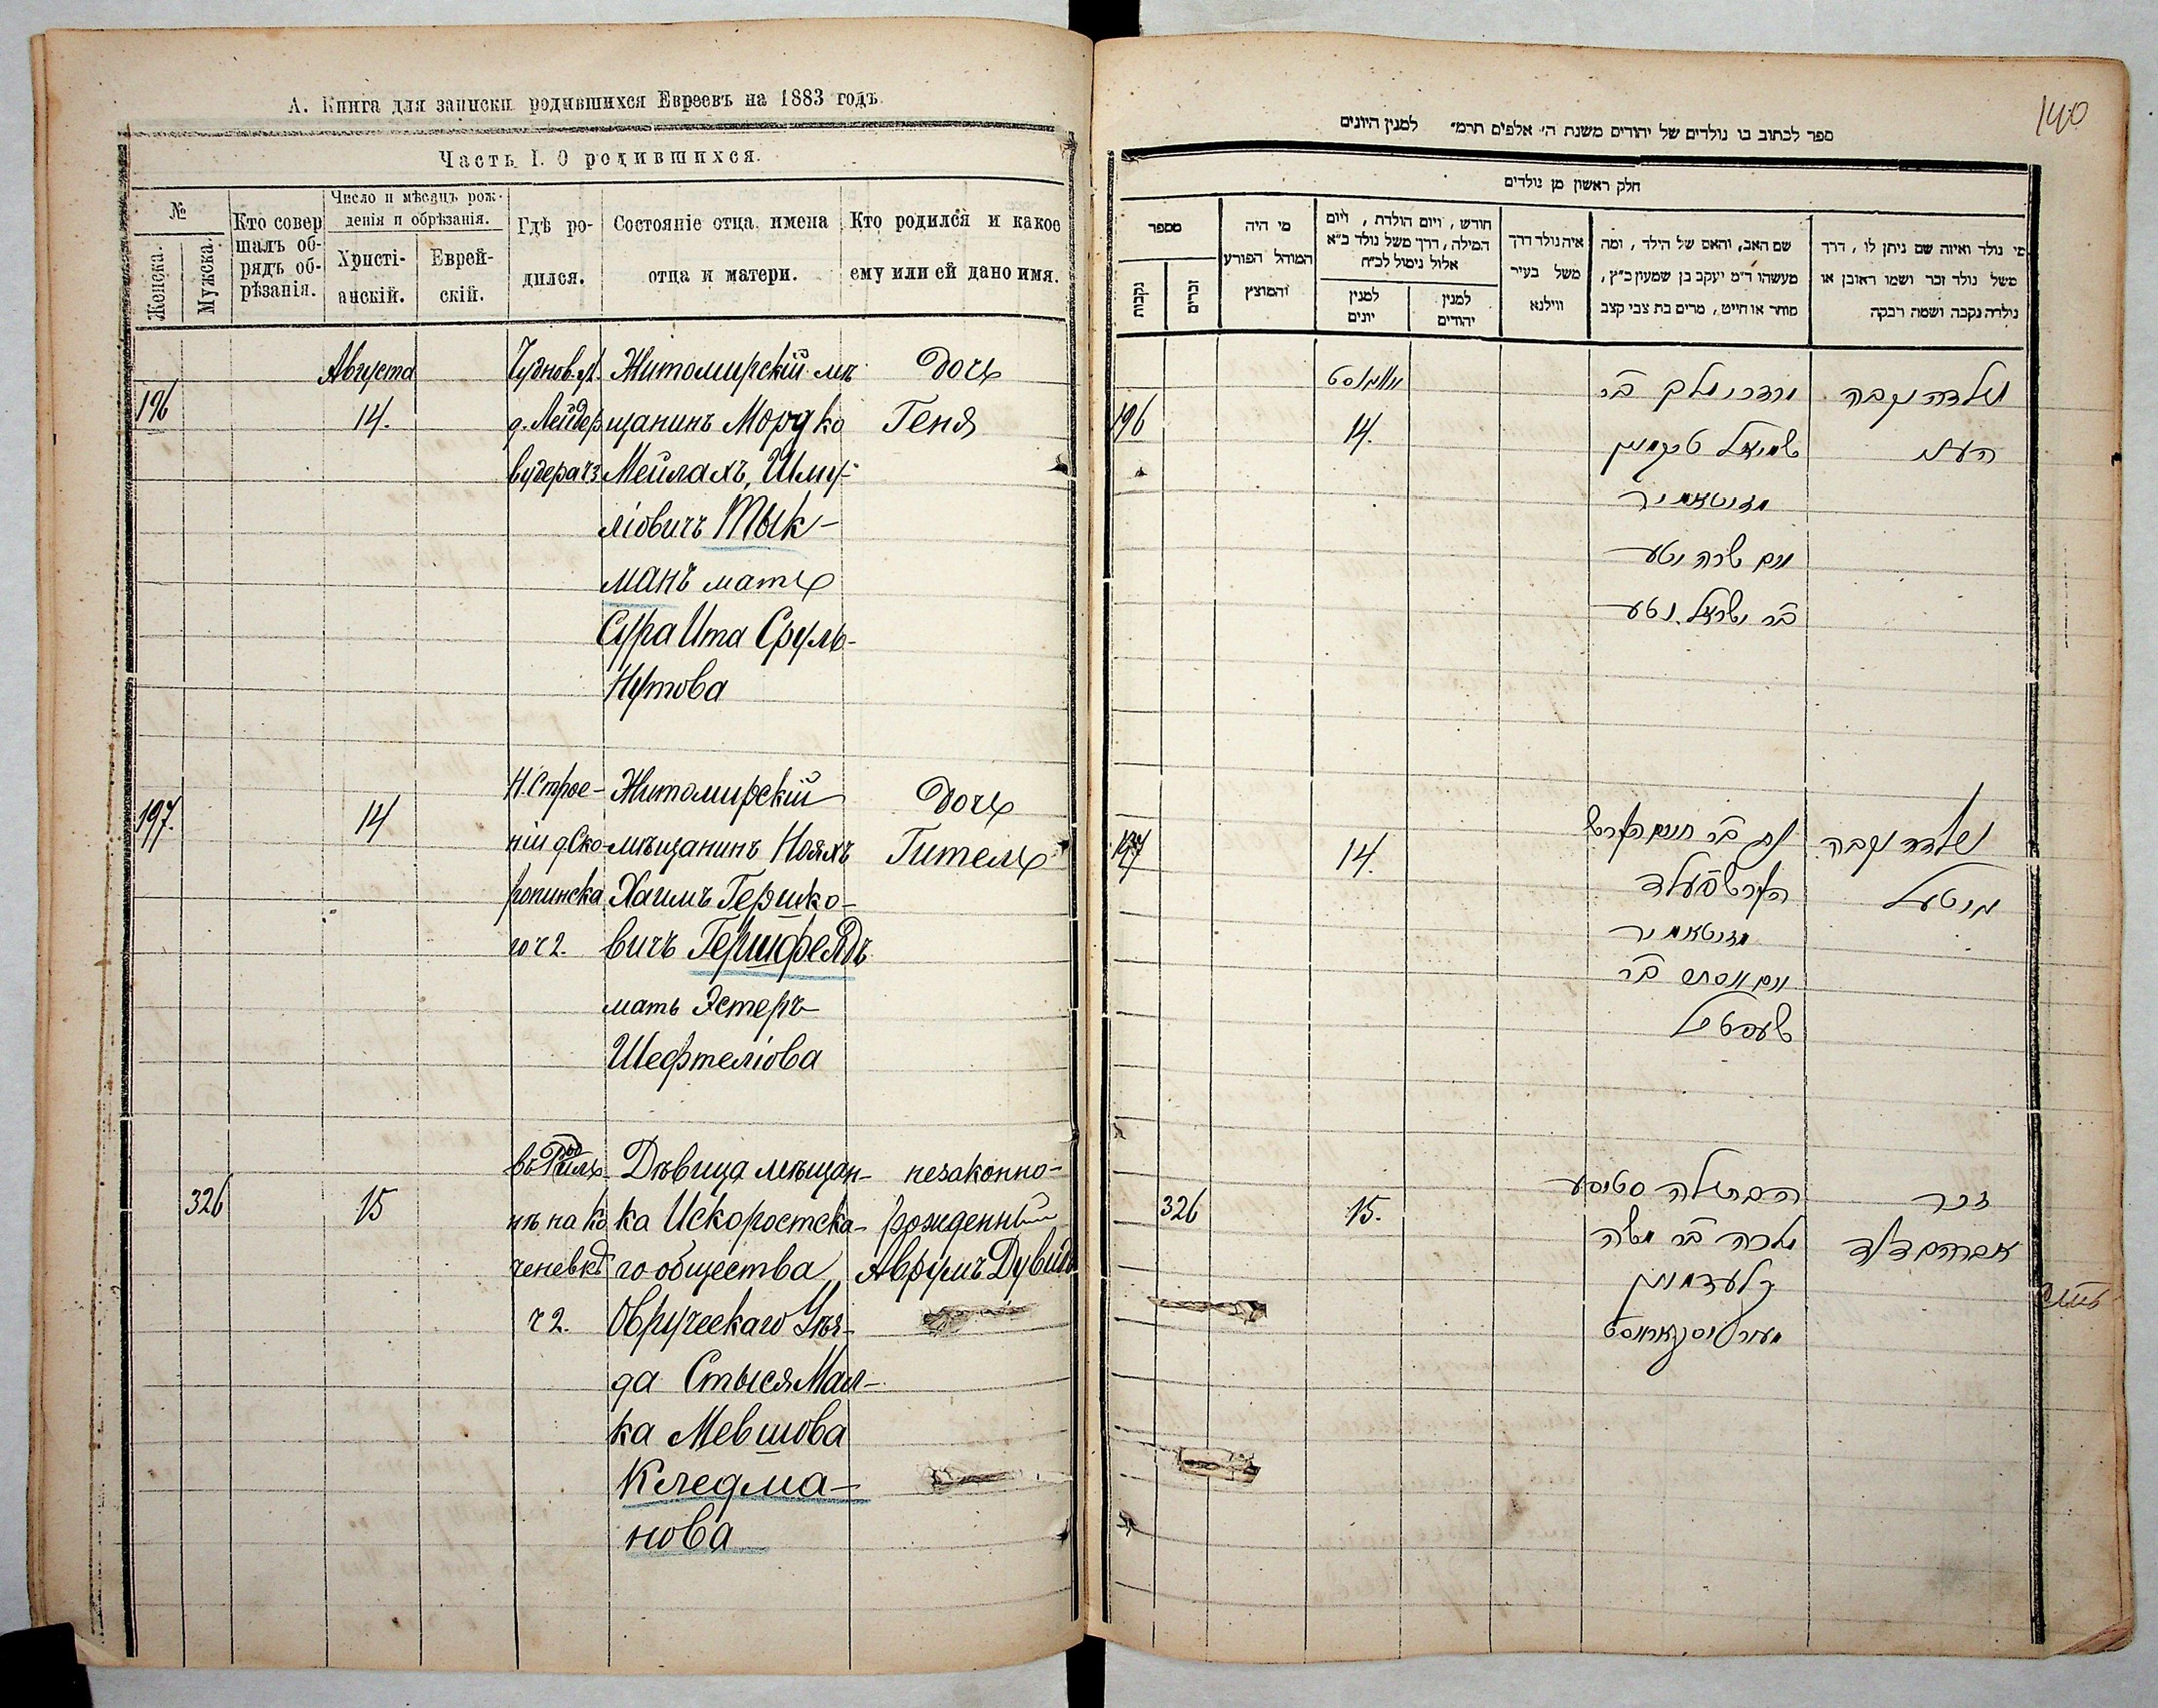 А. Книга для записки родившихся Евреевъ на 1883 годъ.
Часть I. О родившихся.
№
Женска.
Мужска.
Кто совер
шалъ об-
рядъ об-
рѣзанія.
Число и мѣсяцъ рож-
денія и обрѣзанія.
Христі-
анскій.
Еврей-
скій.
Гдѣ ро-
дился.
Состояніе отца, имена
отца и матери.
Кто родился и какое
ему или ей дано имя.
196
Августа
14.
Чуднов. ул.
д. Лейдер
Житомирскій мѣ
щанинъ Мордко
Мейлахъ, Шму-
ліовичъ Тык-
манъ мать
Сура Ита Сруль-
Нутова
Дочь
Геня
197.
14
Н. Строе-
ніи д Ско
ропинска
го ч 2.
Житомирскій
мѣщанинъ Нояхъ
Хаимъ Гершко-
вичъ Гершфелдъ
мать Эстеръ
Шефтеліова
Дочь
Гитель
326
15
нѣ на Ко
ченевкѣ
ч 2.
Дѣвица мѣщан-
ка Искоростска-
го общества
Овручскаго Уѣз-
да Стыся Мал-
ка Мевшова
Кледма-
нова
незаконно-
рожденный
Аврумъ Дувидъ
140
ספר לכתוב בו נולדים של יהודים משנת ה׳ אלפים תרמ״ למנין היונים
חלק ראשון מן נולדים
מספר
נקבות
זכרים
מי היה
המוהל הפורע
והמוצץ
חודש, ויום הולדת, ויום
המילה, דרך משל נולד כ״א
אלול נימול לכ״ח
למנין
יונים
למנין
יהודים
איה נולד דרך
משל בעיר
ווילנא
שם האב, והאם של הילד, ומה
מעשהו ד״מ יעקב בן שמעון כ״ץ,
סוחר או חייט, מרים בת צבי קצב
מי נולד ואיזה שם ניתן לו, דרך
משל נולד זכר ושמו ראובן או
נולדה נקבה ושמה רבקה
196
אויגוסט
14.
שמואל טיקמאן
זיטאמיר
ואם שרה יטע
בר ישראל נטע
נולדה נקבה
העניא
197
14.
נח בר חיים הערש
הערשפעלד
זיטאמיר
ואם אסתר בר
שעפטיל
נולדה נקבה
גיטעל
326
15.
הבתולה סטיסע
מלכה בר משה
קלעדמאן
זכר
אברהם דוד